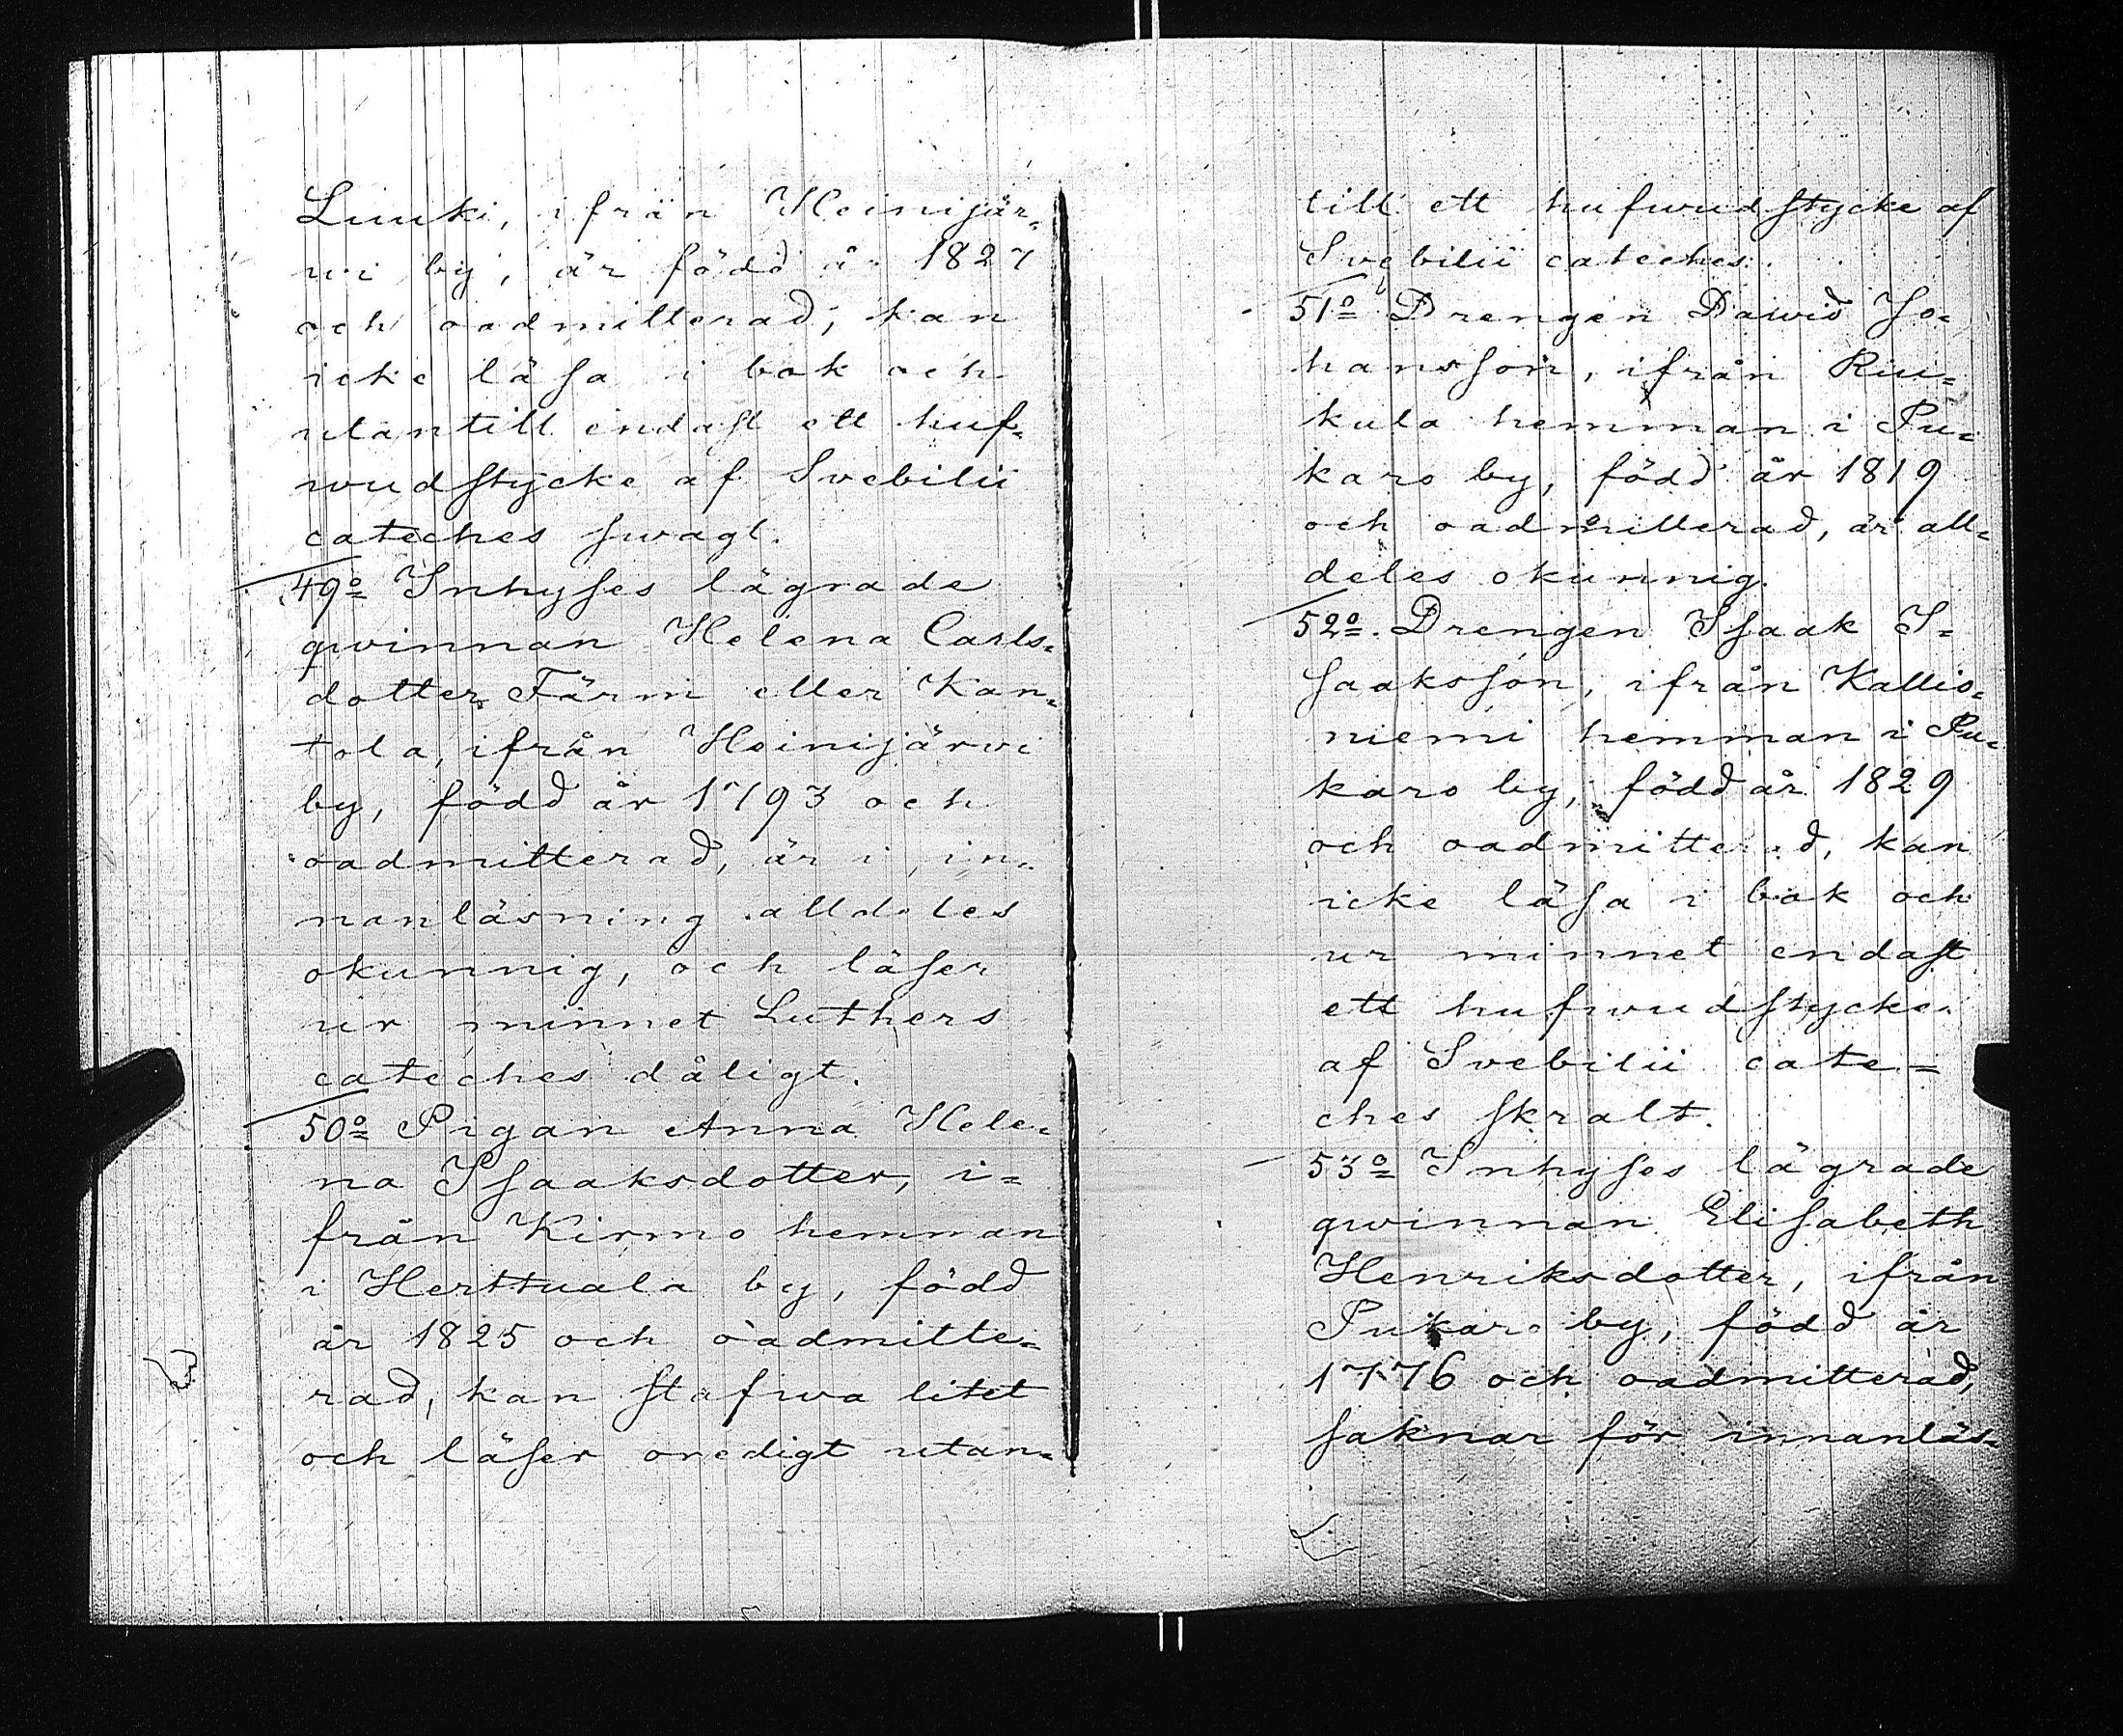 Luuki, ifrån Heinijär=
wi by, är född år 1827
och oadmitterad, kan
icke läsa i bok och
utantill endast ett huf=
wudstycke af Svebilii
cateches swagt.
49o Inhyses lägrade
qwinnan Helena Carls=
dotter Färm eller Kan=
tola, ifrån Heinijärwi
by, född år 1793 och
oadmitterad, är i in=
nanläsning alldeles
okunnig, och läser
ur minnet Luthers
cateches dåligt.
50o Pigan Anna Hele=
na Isaaksdotter, i=
från Kirmo hemman
i Herttuala by, född
år 1825 och oadmitte=
rad, kan stafwa litet
och läser oredigt utan=
till ett hufwudstycke af
Svebilii cateches.
51o Drengen Dawid Jo=
hansson, ifrån Riu=
kula hemman i Pu=
karo by, född år 1819
och oadmitterad, är all=
deles okunnig.
52o. Drengen Isaak I=
saaksson, ifrån Kallio=
niemi hemman i Pu=
karo by, född år 1829
och oadmitterad, kan
icke läsa i bok och
ur minnet endast
ett hufwudstycke
af Svebilii cate=
ches skralt.
53o Inhyses lägrade
qwinnan Elisabeth
Henriksdotter, ifrån
Pukaro by, född år
1776 och oadmitterad,
saknar för innanläs=